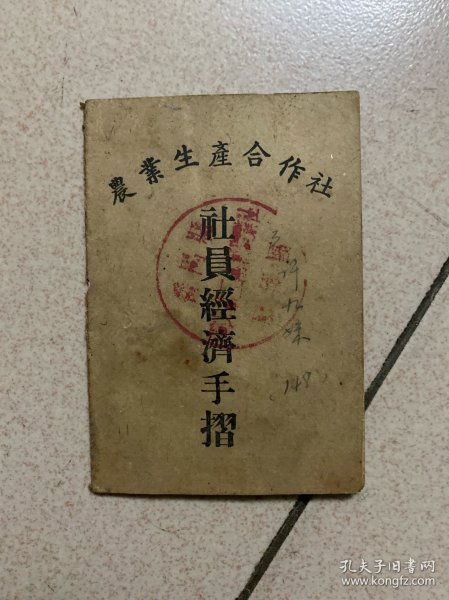 農業生產合作社
社員經濟手摺
(148)
孔夫子旧书网
www.kongfz.com